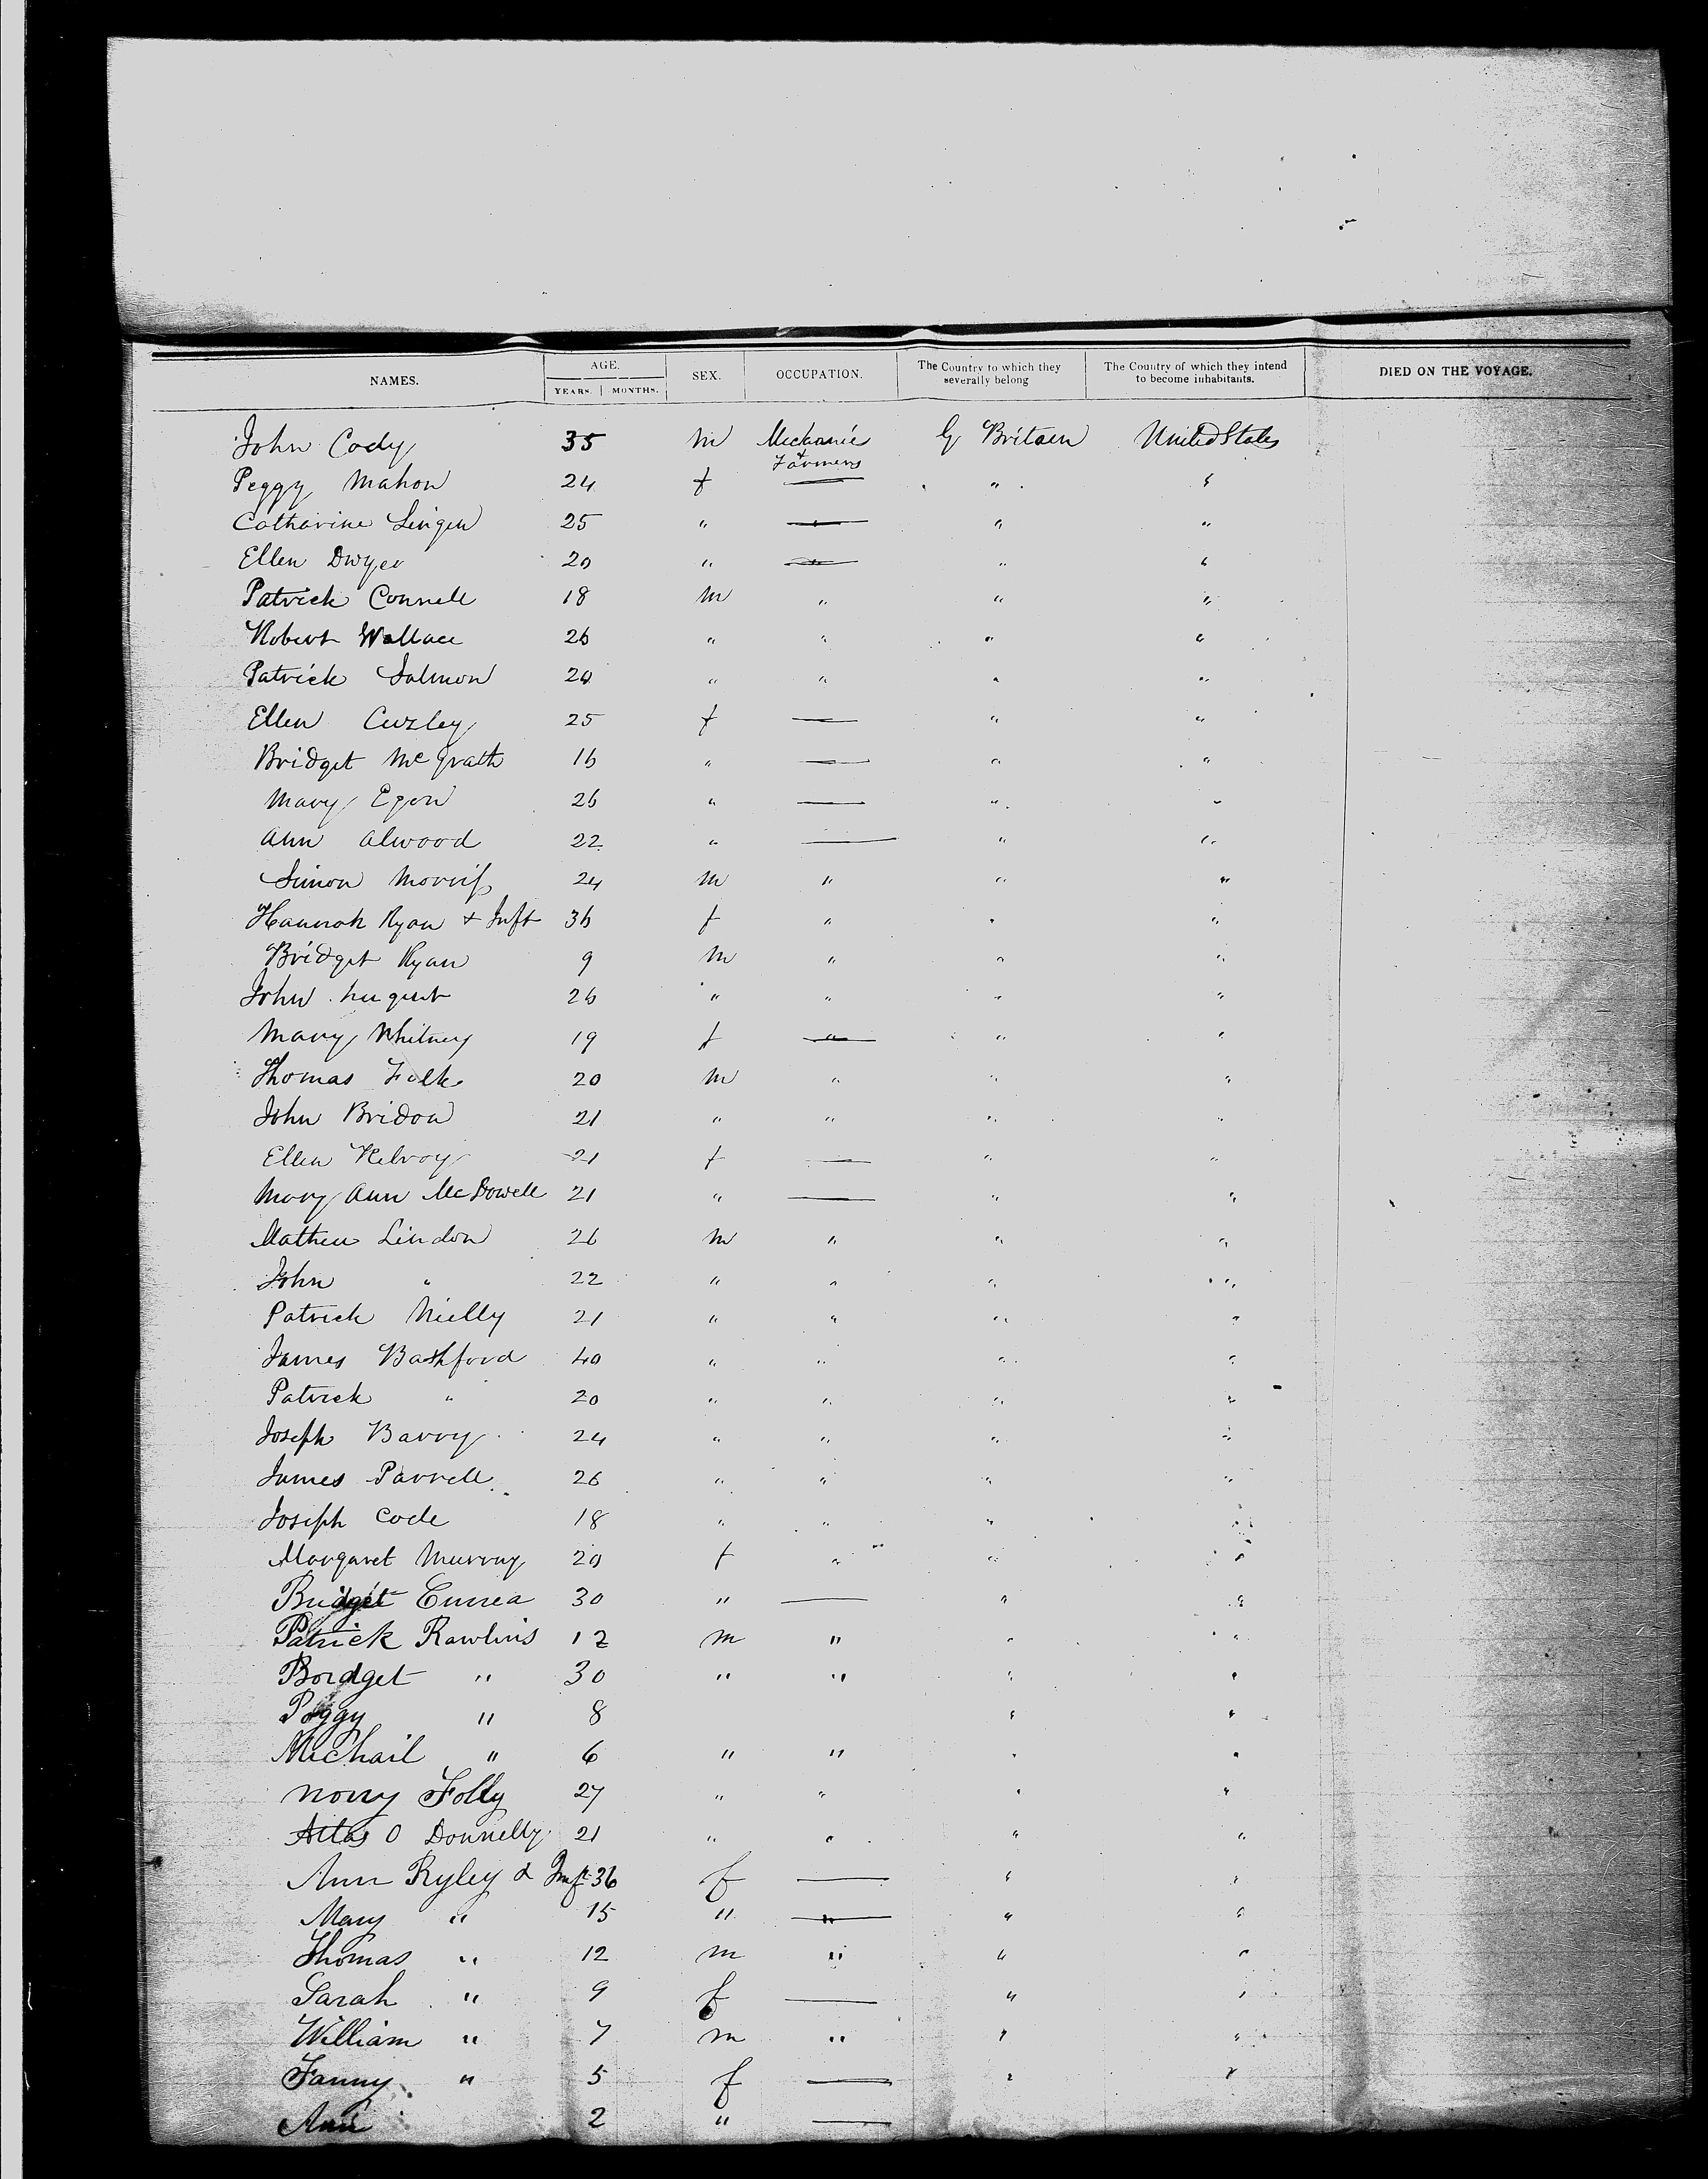 NAMES. AGE. YEARS. MONTHS. SEX. OCCUPATION. The Country to which they severally belong The Country of which they intend to become inhabitants. DIED ON THE VOYAGE.
John Cody 35 m Mechanic & Farmers G Britain United States
Peggy Mahon 24 f — " "
Catharine 25 " — " "
Ellen Dwyer 20 " — " "
Patrick Connell 18 m " " "
Robert Wallace 26 " " " "
Patrick Salmon 20 " " " "
Ellen 25 f — " "
Bridget McGrath 16 " — " "
Mary Egon 26 " — " "
Ann Alwood 22 " — " "
Simon Morris 24 m " " "
Hannah Ryan & Inft 36 f " " "
Bridget Ryan 9 m " " "
John 26 " " " "
Mary Whitney 19 f — " "
Thomas Folk 20 m " " "
John Bridon 21 " " " "
Ellen Kelroy 21 f — " "
Mary Ann McDowell 21 " — " "
Mathew Lindon 26 m " " "
John " 22 " " " "
Patrick Nielly 21 " " " "
James Bashford 40 " " " "
Patrick " 20 " " " "
Joseph Barry 24 " " " "
James Parrell 26 " " " "
Joseph Code 18 " " " "
Margaret Murray 20 f " " "
Bridget 30 " — " "
Patrick Rawlins 12 m " " "
Bridget " 30 " " " "
Peggy " 8 " "
Michail " 6 " " " "
Nory Folly 27 " " " "
O Donnelly 21 " " " "
Ann Ryley & Inft 36 f — " "
Mary " 15 " — " "
Thomas " 12 m " " "
Sarah " 9 f — " "
William " 7 m " " "
Fanny " 5 f — " "
Ann 2 " —